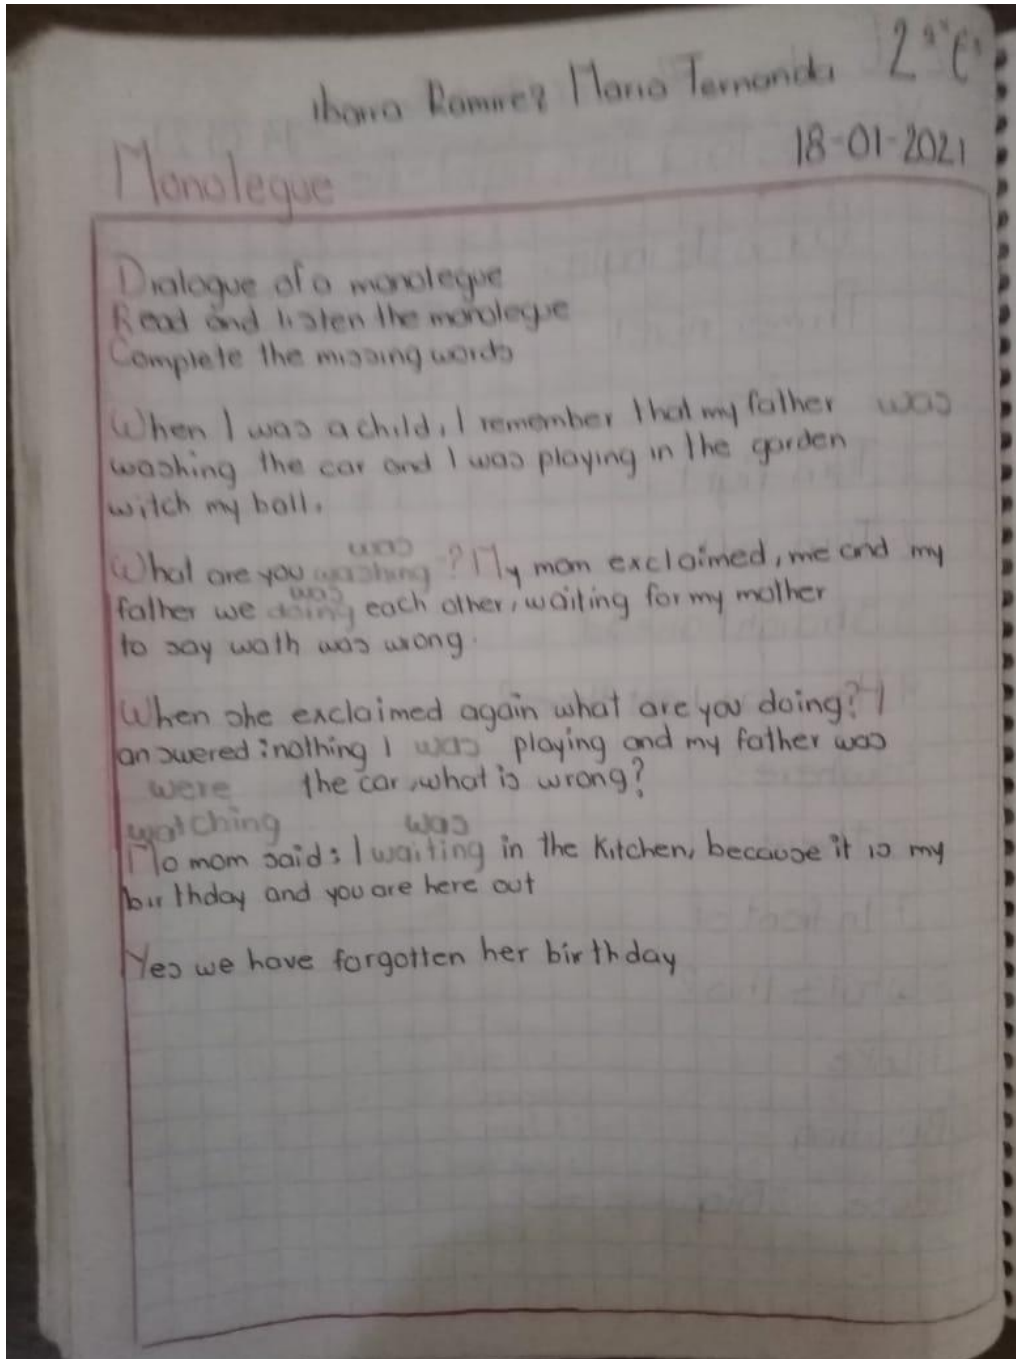 Ibarra Ramirez Maria Fernanda 2°
18-01-2021
Monolegue
Dialogue of a monolegue
Read and listen the monolegue
Complete the missing words
When I was a child, I remember that my father was
washing the car and I was playing in the garden
witch my ball.
was
What are you washing? My mom exclaimed, me and my
was
father we doing each other, waiting for my mother
to say wath was wrong.
When she exclaimed again what are you doing? I
answered: nothing I was playing and my father was
were the car, what is wrong?
watching was
Mo mom said: I waiting in the kitchen, because it is my
birthday and you are here out
Yes we have forgotten her birthday